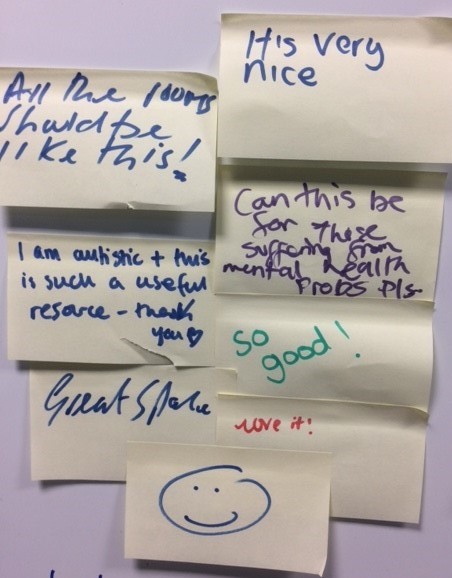 All the rooms
should be
like this!
Itis very
nice
Can this be
for those
suffering from
mental health
Probs pls
I am autistic + this
is such a useful
resource - thank
you
so
good!
Great Space
Love it!